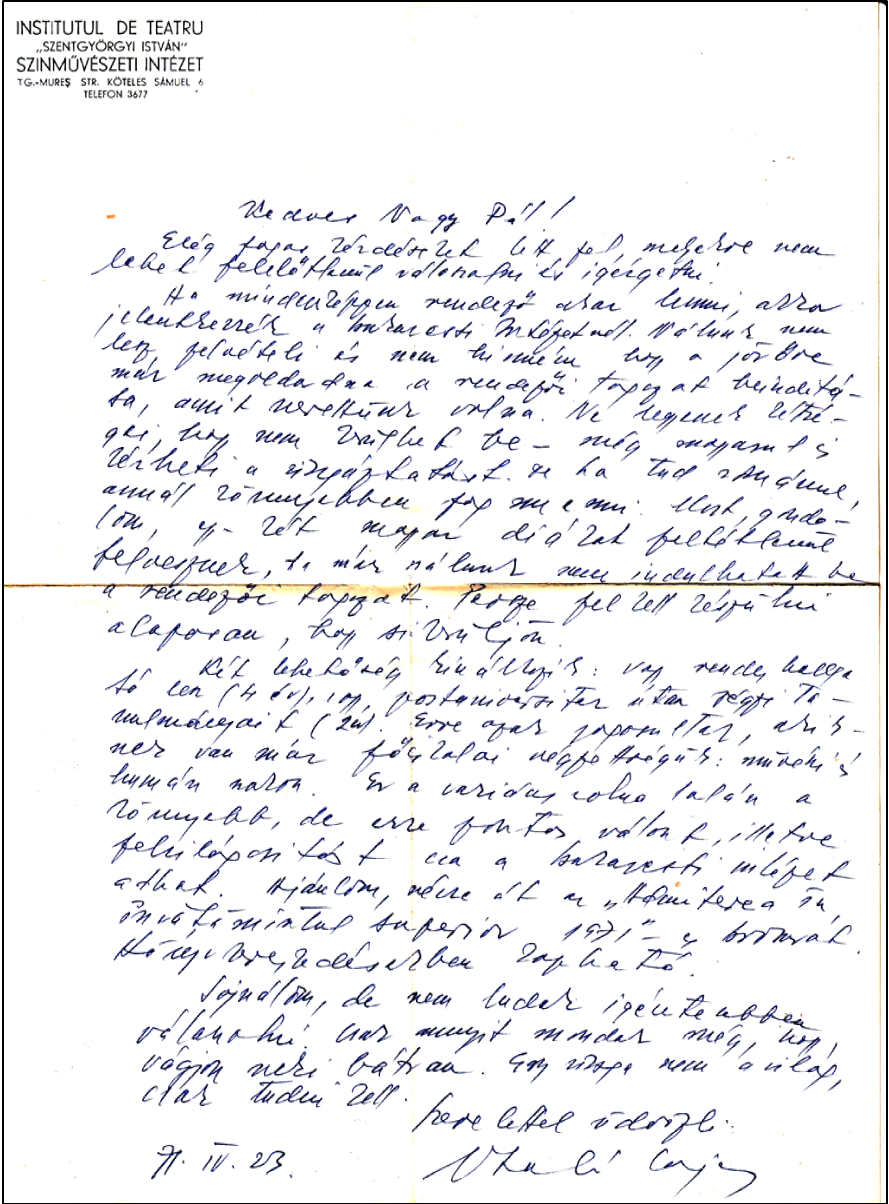 INSTITUTUL DE TEATRU
„SZENTGYÖRGYI ISTVÁN"
SZINMŰVÉSZETI INTÉZET
TG.-MUREŞ STR. KÖTELES SÁMUEL 6
TELEFON 3677
Kedves Nagy Pál!
Elég fogas kérdéseket tett fel, melyekre nem
lehet felelőtlenül válaszolni és igérgetni.
Ha mindenképpen rendező akar lenni, akkor
jelentkezzék a bukaresti Intézetnél. Nálunk nem
lesz felvételi és nem hinném hogy a jövőre
már megoldódna a rendezői tagozat beinditá-
sa, amit szerettünk volna. Ne legyenek kétsé-
gei, hogy nem kerülhet be – még magyarul is
kérheti a vizsgáztatást. De ha tud románul,
annál könnyebben fog menni. Most, gondo-
lom, egy-két magyar diákot feltétlenül
felvesznek, ha már nálunk nem indulhatott be
a rendezői tagozat. Persze fel kell készülni
alaposan, hogy sikerüljön.
Két lehetőség kinálkozik: vagy rendes hallga
tó lesz (4 év), vagy postuniversitar úton végzi ta-
nulmányait (2 év). Erre azok jogosultak, akik-
nek van már főiskolai végzettségük: művészi és
humán szakon. Ez a variáns volna talán a
könnyebb, de erre pontos választ, illetve
felvilágositást csak a bukaresti intézet
adhat. Ajánlom, nézze át az „Admiterea în
învăţămîntul superior 1971" – es brosurát.
Könyvkereskedésekben kapható.
Sajnálom, de nem tudok igéretesebben
válaszolni. Csak annyit mondok még, hogy
vágjon neki bátran. Egy vizsga nem a világ,
csak tudni kell.
Szeretettel üdvözli:
71. IV. 23.